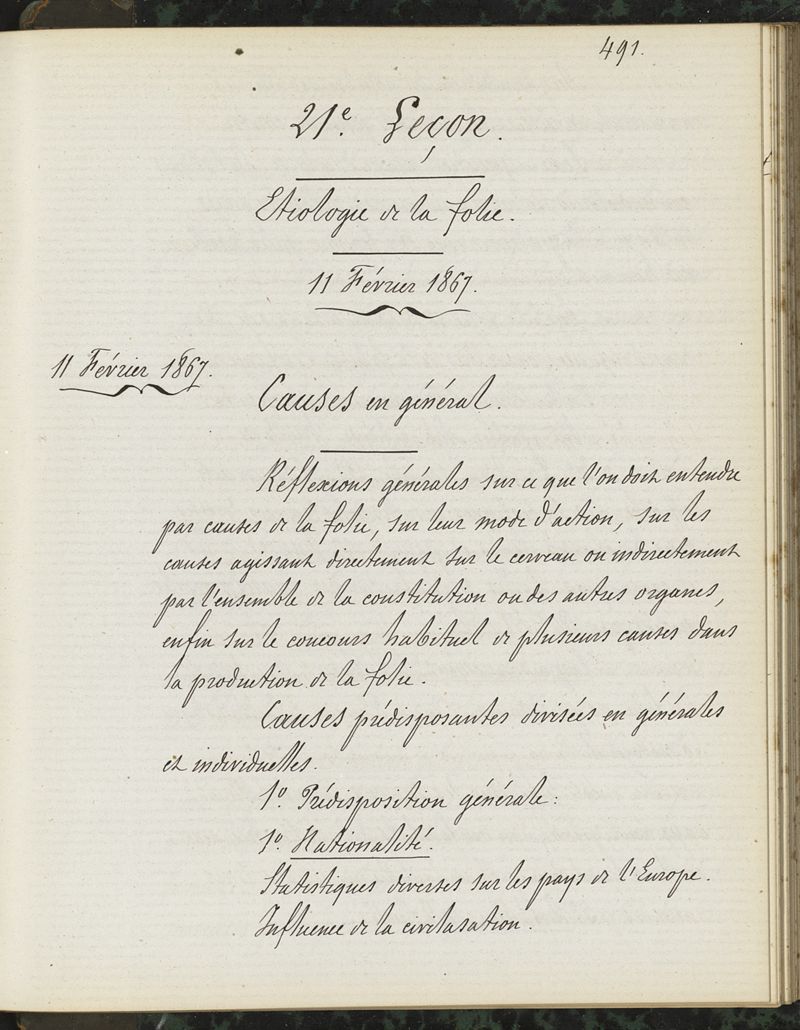 491.
21e. Leçon.
Etiologie de la folie.
11 Février 1867.
11 Février 1867.
Causes en général.
Réflexions générales sur ce que l'on doit entendre
par causes de la folie, sur leur mode d'action, sur les
causes agissant directement sur le cerveau ou indirectement
par l'ensemble de la constitution ou des autres organes,
enfin sur le concours habituel de plusieurs causes dans
la production de la folie.
Causes prédisposantes divisées en générales
et individuelles.
1o. Prédisposition générale:
1o. Nationalité.
Statistiques diverses sur les pays de l'Europe.
Influence de la civilasation.